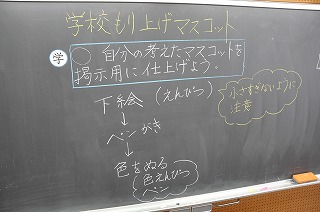 学校もり上げマスコット
学
○ 自分の考えたマスコットを
掲示用に仕上げよう。
下絵(えんぴつ)
↓
ペンがき
↓
色をぬる
色えんぴつ
ペン
小さすぎないように
注意